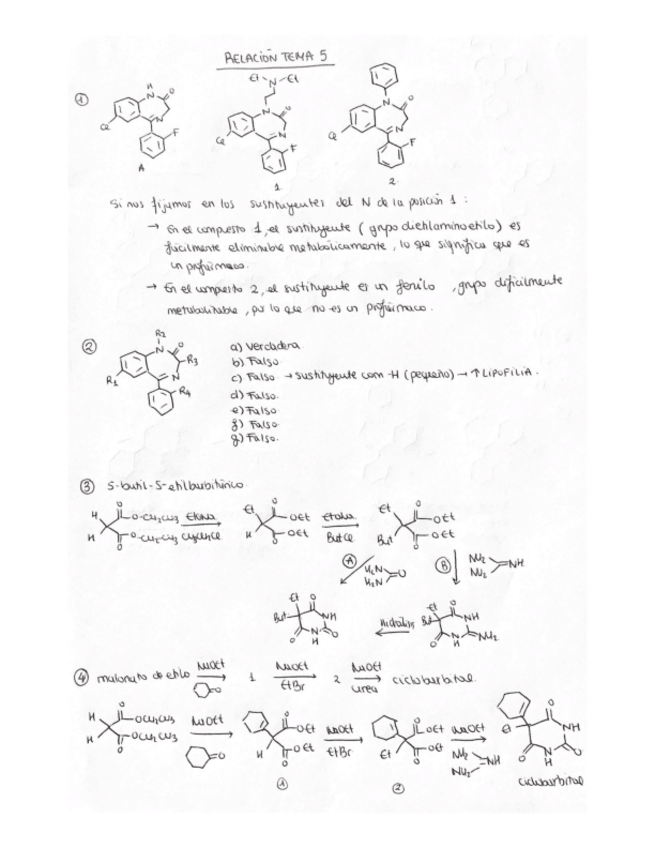 RELACIÓN TEMA 5
①
H
N
O
N
Cl
F
A
Et N Et
N
O
N
Cl
F
1
N
O
N
Cl
F
2
Si nos fijamos en los sustituyentes del N de la posición 1 :
→ En el compuesto 1, el sustituyente (grupo dietilaminoetilo) es
fácilmente eliminable metabólicamente, lo que significa que es
un profármaco.
→ En el compuesto 2, el sustituyente es un fenilo, grupo difícilmente
metabolizable, por lo que no es un profármaco.
②
R2
N
O
R3
N
R1
R4
a) Verdadera
b) Falso
c) Falso → sustituyente com -H (pequeño) → ↑ LIPOFILIA.
d) Falso.
e) Falso
f) Falso
g) Falso.
③ 5-butil-5-etilbarbitúrico
H
H
O
O-CH2CH3
O-CH2CH3
O
EtONa
CH3CH2Cl
Et
H
O
OEt
OEt
O
EtONa
ButCl
Et
But
O
OEt
OEt
O
Ⓐ
H2N
H2N
O
Ⓑ
NH2
NH2
NH
Et
But
O
NH
O
N
H
O
hidrólisis
Et
But
O
NH
NH2
N
O
④ malonato de etilo NaOEt
O
1 NaOEt
EtBr
2 NaOEt
urea
ciclobarbital.
H
H
O
OCH2CH3
OCH2CH3
O
NaOEt
O
H
O
OEt
OEt
O
①
NaOEt
EtBr
Et
O
OEt
OEt
O
②
NaOEt
NH2
NH2
NH
Et
O
NH
O
N
H
O
ciclobarbital